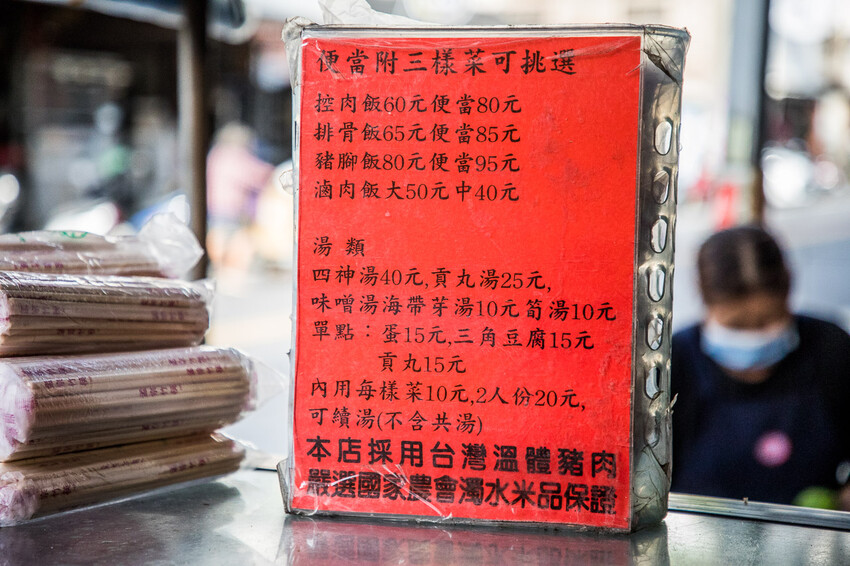 便當附三樣菜可挑選
控肉飯60元便當80元
排骨飯65元便當85元
豬腳飯80元便當95元
滷肉飯大50元中40元
湯 類
四神湯40元,貢丸湯25元,
味噌湯海帶芽湯10元筍湯10元
單點：蛋15元,三角豆腐15元
貢丸15元
內用每樣菜10元,2人份20元,
可續湯(不含共湯)
本店採用台灣溫體豬肉
嚴選國家農會濁水米品保證